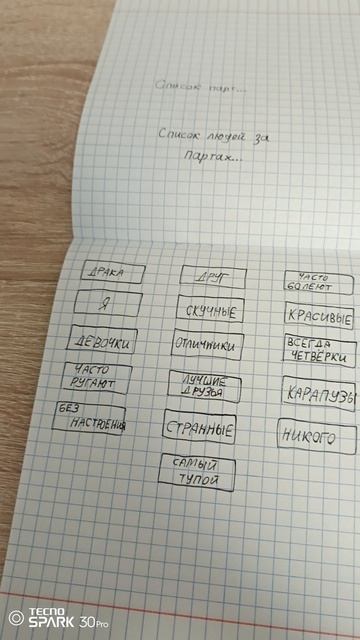 Список парт...
Список людей за
партах...
ДРАКА
ДРУГ
ЧАСТО
БОЛЕЮТ
Я
СКУЧНЫЕ
КРАСИВЫЕ
ДЕВОЧКИ
ОТЛИЧНИКИ
ВСЕГДА
ЧЕТВЁРКИ
ЧАСТО
РУГАЮТ
ЛУЧШИЕ
ДРУЗЬЯ
КАРАПУЗЫ
БЕЗ
НАСТРОЕНИЯ
СТРАННЫЕ
НИКОГО
САМЫЙ
ТУПОЙ
TECNO
SPARK 30Pro